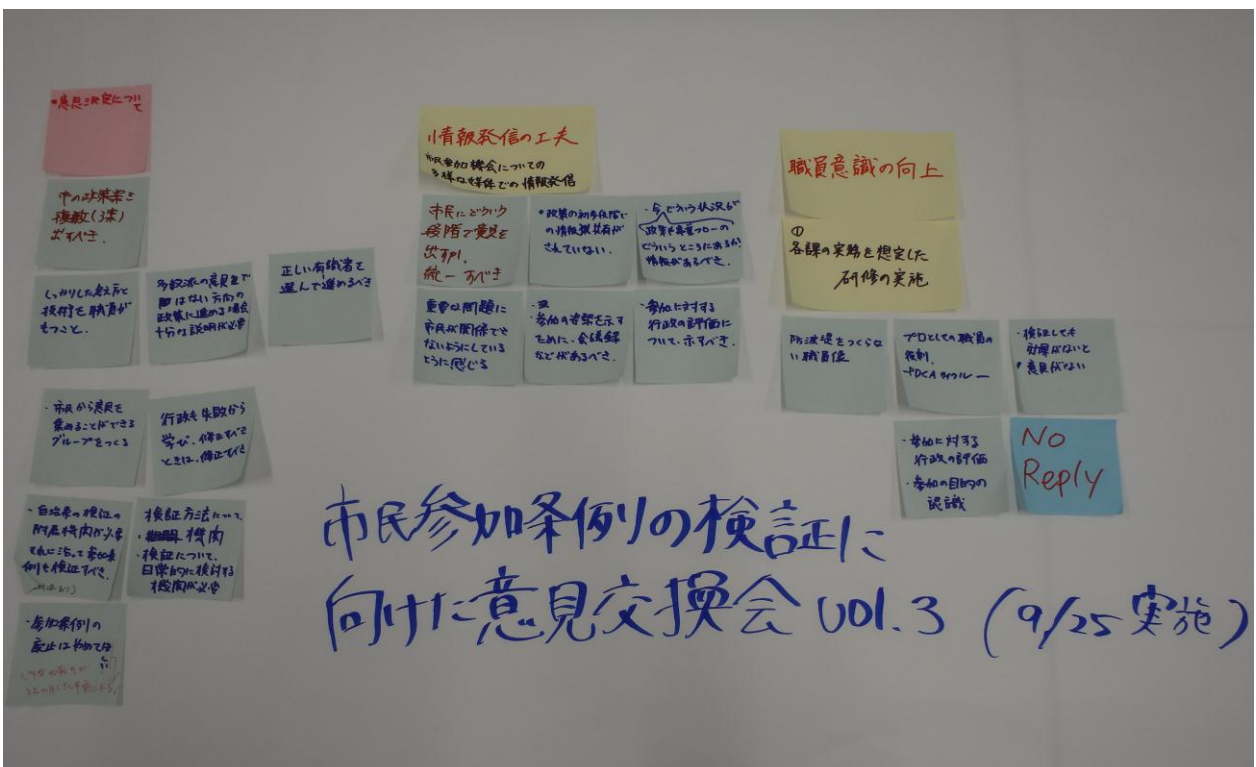 ・意思決定につい
て
市の政策案を
複数(3案)
出すべき.
しっかりした考え方と
技術を職員が
もつこと.
多数派の意見まで
はない方向の
政策に進める場合
十分な説明が必要
正しい有識者を
選んで進めるべき
・市民から意見を
集めることができる
グループをつくる
行政も失敗から
学び、修正すべき
ときは、修正すべき
・自治条の検証の
附属機関が必要
それに沿って参加条
例も検証すべき.
検証方法について
・機関
・検証について、
日常的に検討する
機関が必要
・参加条例の
廃止はやめてほ
しい
情報発信の工夫
市民参加機会についての
多様な媒体での情報発信
市民にどういう
段階で意見を
出すか、
統一すべき
・政策の初多段階で
の情報提共有が
されていない.
・今どういう状況が
政策や事業フローの
どういうところにあるか
情報があるべき.
重要な問題に
市民が関係でき
ないようにしている
ように感じる
・参加の姿勢を示す
ために、会議録
などがあるべき.
・参加に対する
行政の評価に
ついて、示すべき.
職員意識の向上
①
各課の実務を想定した
研修の実施
防波堤をつくらな
い職員像
プロとしての職員の
役割.
PDCAサイクルー
・検証しても
効果がないと
・意見がない
・参加に対する
行政の評価
・参加の目的の
認識
No
Reply
市民参加条例の検証に
向けた意見交換会 vol.3 (9/25実施)